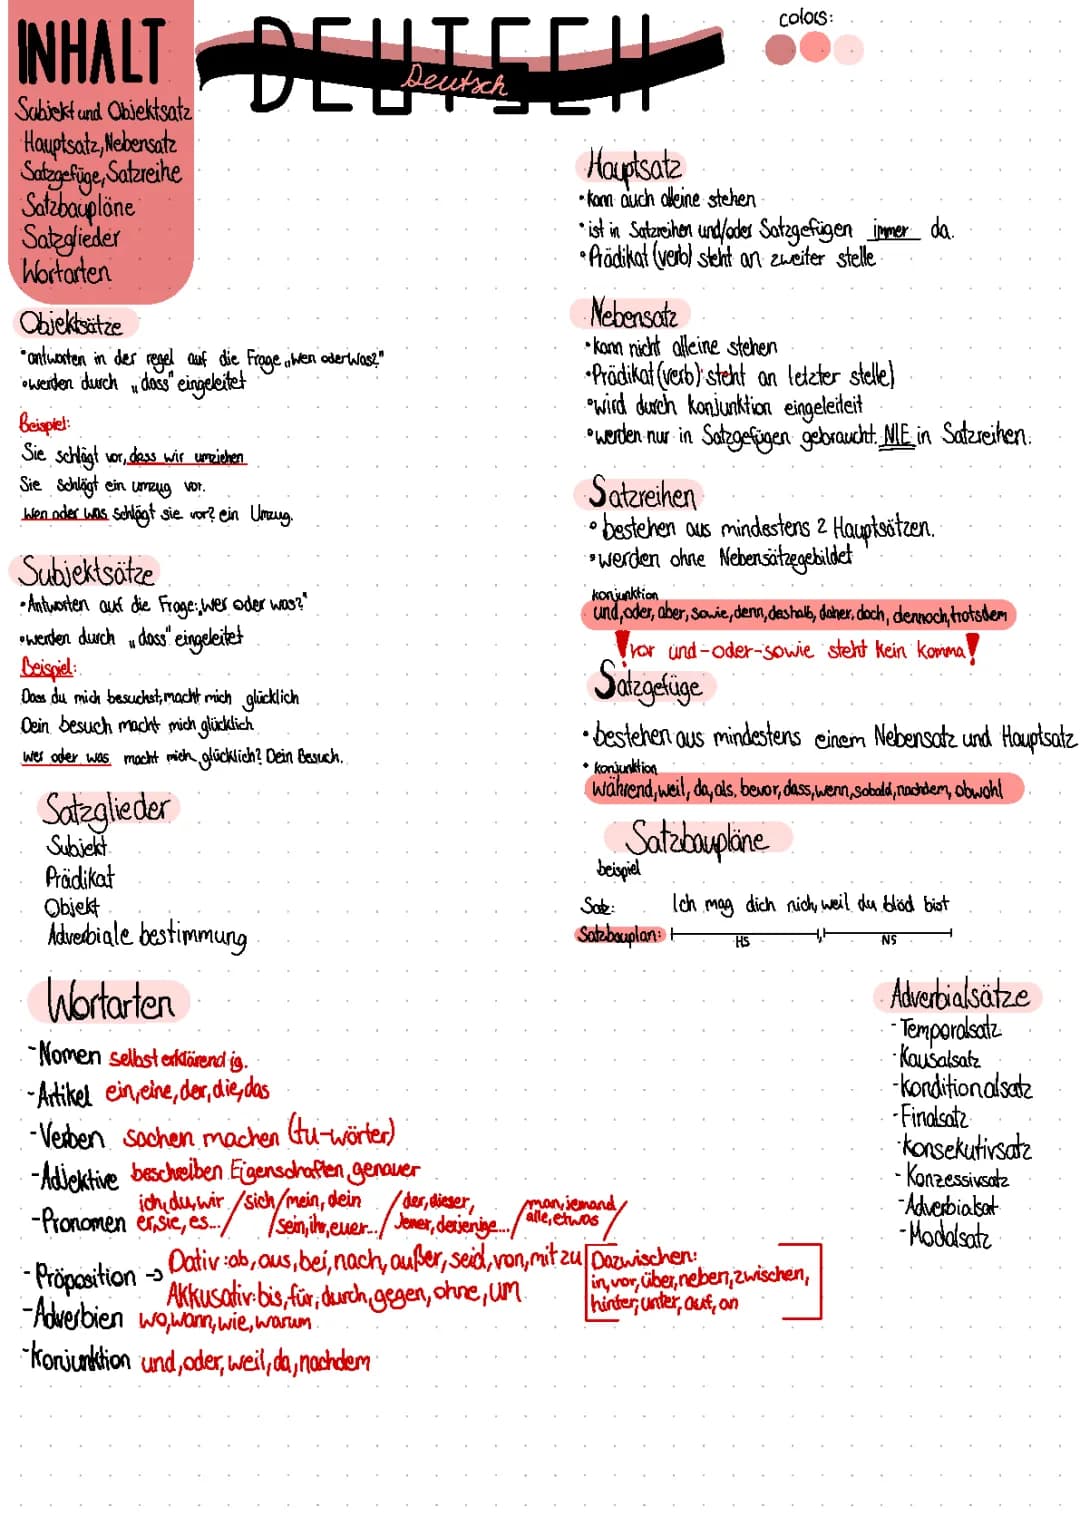 INHALT
Subjekt und Objektsatz
Hauptsatz, Nebensatz
Satzgefüge, Satzreihe
Satzbaupläne
Satzglieder
Wortarten
DEUTSCH
Deutsch
colors:
Objektsätze
•antworten in der regel auf die Frage „Wen oder Was?"
•werden durch „dass" eingeleitet
Beispiel:
Sie schlägt vor, dass wir umziehen
Sie schlägt ein umzug vor.
Wen oder was schlägt sie vor? ein Umzug.
Subjektsätze
•Antworten auf die Frage: „wer oder was?"
•werden durch „dass" eingeleitet
Beispiel:
Dass du mich besuchst, macht mich glücklich
Dein besuch macht mich glücklich
Wer oder was macht mich glücklich? Dein Besuch.
Satzglieder
Subjekt
Prädikat
Objekt
Adverbiale bestimmung
Hauptsatz
•kann auch alleine stehen
•ist in Satzreihen und/oder Satzgefügen immer da.
•Prädikat (verb) steht an zweiter stelle
Nebensatz
•kann nicht alleine stehen
•Prädikat (verb) steht an letzter stelle)
•wird durch konjunktion eingeleileit
•werden nur in Satzgefügen gebraucht. NIE in Satzreihen.
Satzreihen
•bestehen aus mindestens 2 Hauptsätzen.
•werden ohne Nebensätzegebildet
konjunktion
und, oder, aber, sowie, denn, deshalb, daher, doch, dennoch, trotsdem
!vor und-oder-sowie steht kein komma!
Satzgefüge
•bestehen aus mindestens einem Nebensatz und Hauptsatz
• konjunktion
Während, weil, da, als, bevor, dass, wenn, sobald, nachdem, obwohl
Satzbaupläne
beispiel
Satz: Ich mag dich nich, weil du blöd bist
Satzbauplan: HS , NS
Wortarten
-Nomen selbsterklärend ig.
-Artikel ein, eine, der, die, das
-Verben sachen machen (tu-wörter)
-Adjektive beschreiben Eigenschaften genauer
-Pronomen ich, du, wir er, sie, es.../ sich/ mein, dein sein, ihr, euer.../ der, dieser, Jener, derjenige.../ man, jemand alle, etwas/
-Präposition → Dativ: ab, aus, bei, nach, außer, seid, von, mit zu
Akkusativ: bis, für, durch, gegen, ohne, um
[Dazwischen:
in, vor, über, neben, zwischen,
hinter, unter, auf, an]
-Adverbien wo, wann, wie, warum
-Konjunktion und, oder, weil, da, nachdem
Adverbialsätze
-Temporalsatz
-Kausalsatz
-Konditionalsatz
-Finalsatz
-Konsekutivsatz
-Konzessivsatz
-Adverbialsat
-Modalsatz